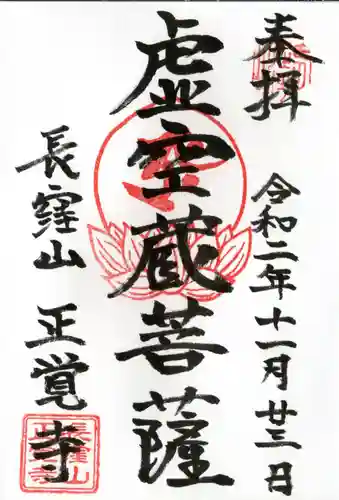 奉拝
令和二年十一月廿三日
虚空蔵菩薩
長窪山 正覚寺